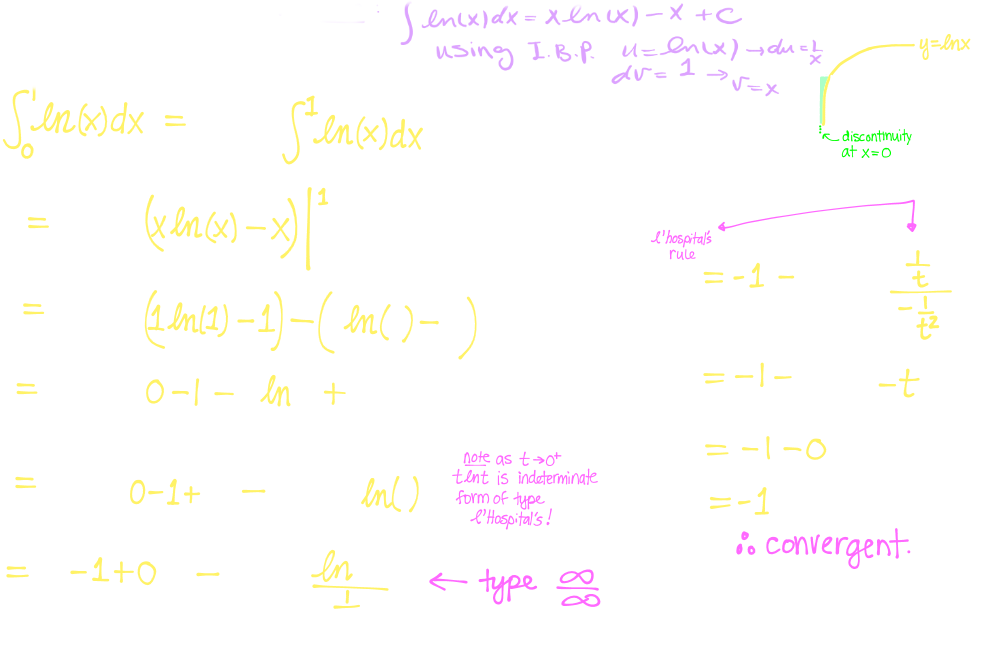 ∫ ln(x)dx = x ln(x) - x + C
using I.B.P. u = ln(x) → du = 1/x
dv = 1 → v = x
y = lnx
discontinuity
at x=0
∫₀¹ ln(x)dx = ∫¹ ln(x)dx
= (x ln(x) - x)|¹
= (1 ln(1) - 1) - ( ln( ) - )
= 0 - 1 - ln +
= 0 - 1 + - ln( )
note as t → 0⁺
t lnt is indeterminate
form of type
l'Hospital's!
= -1 + 0 - ln / 1 ← type ∞/∞
l'hospital's
rule
= -1 - (1/t)/(-1/t²)
= -1 - -t
= -1 - 0
= -1
∴ convergent.